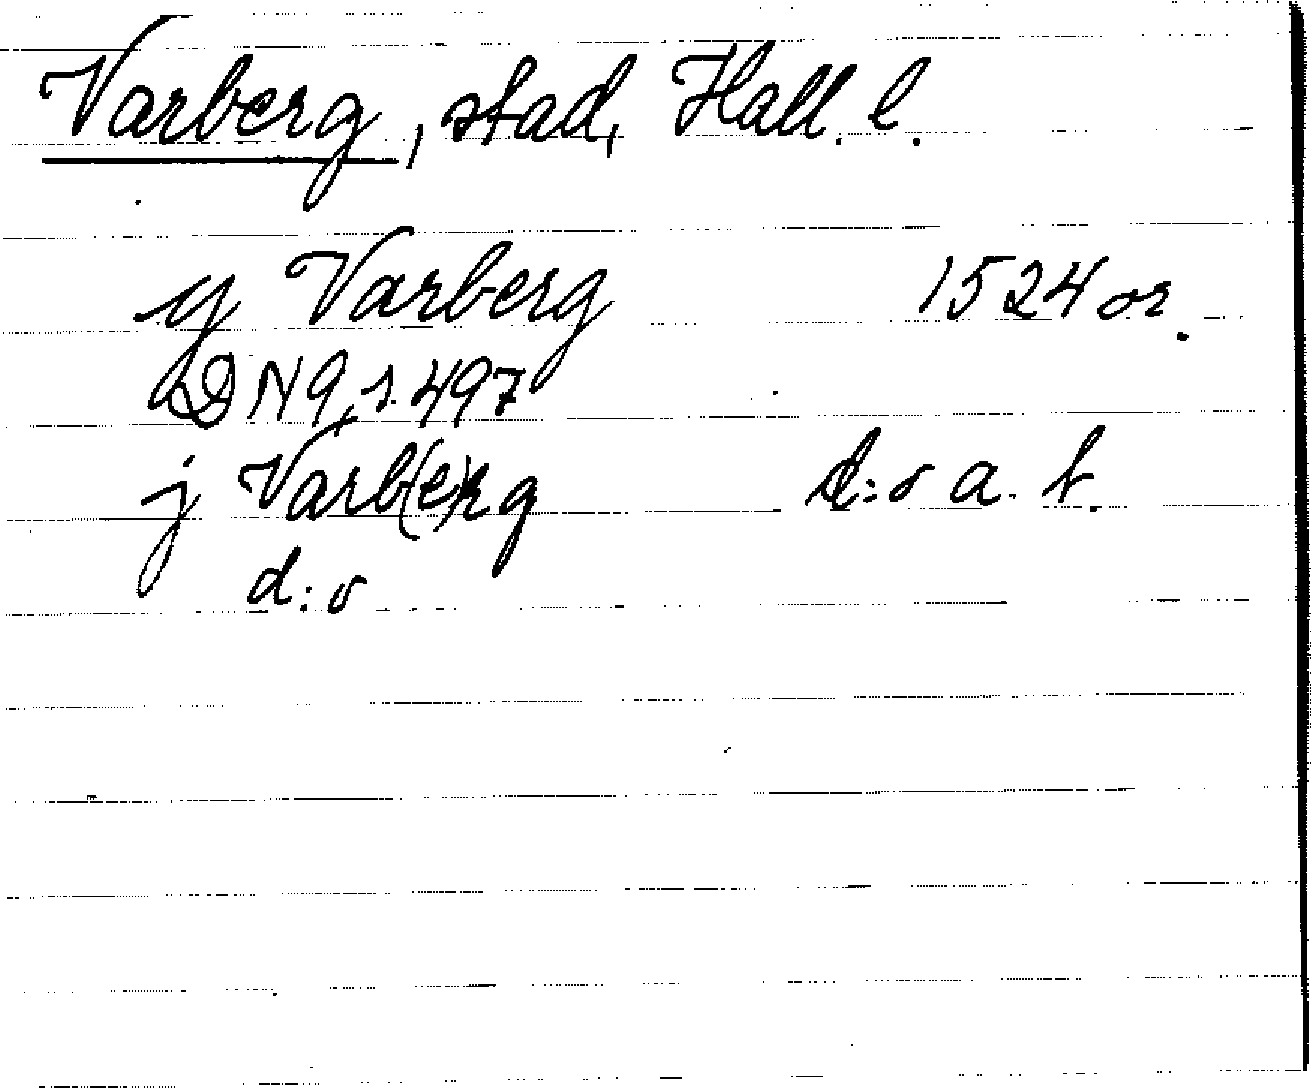 Varberg, stad, Hall. l.
y Varberg 1524 or.
DN 9, s. 497
j Varb(e)rg d:o a. b.
d:o